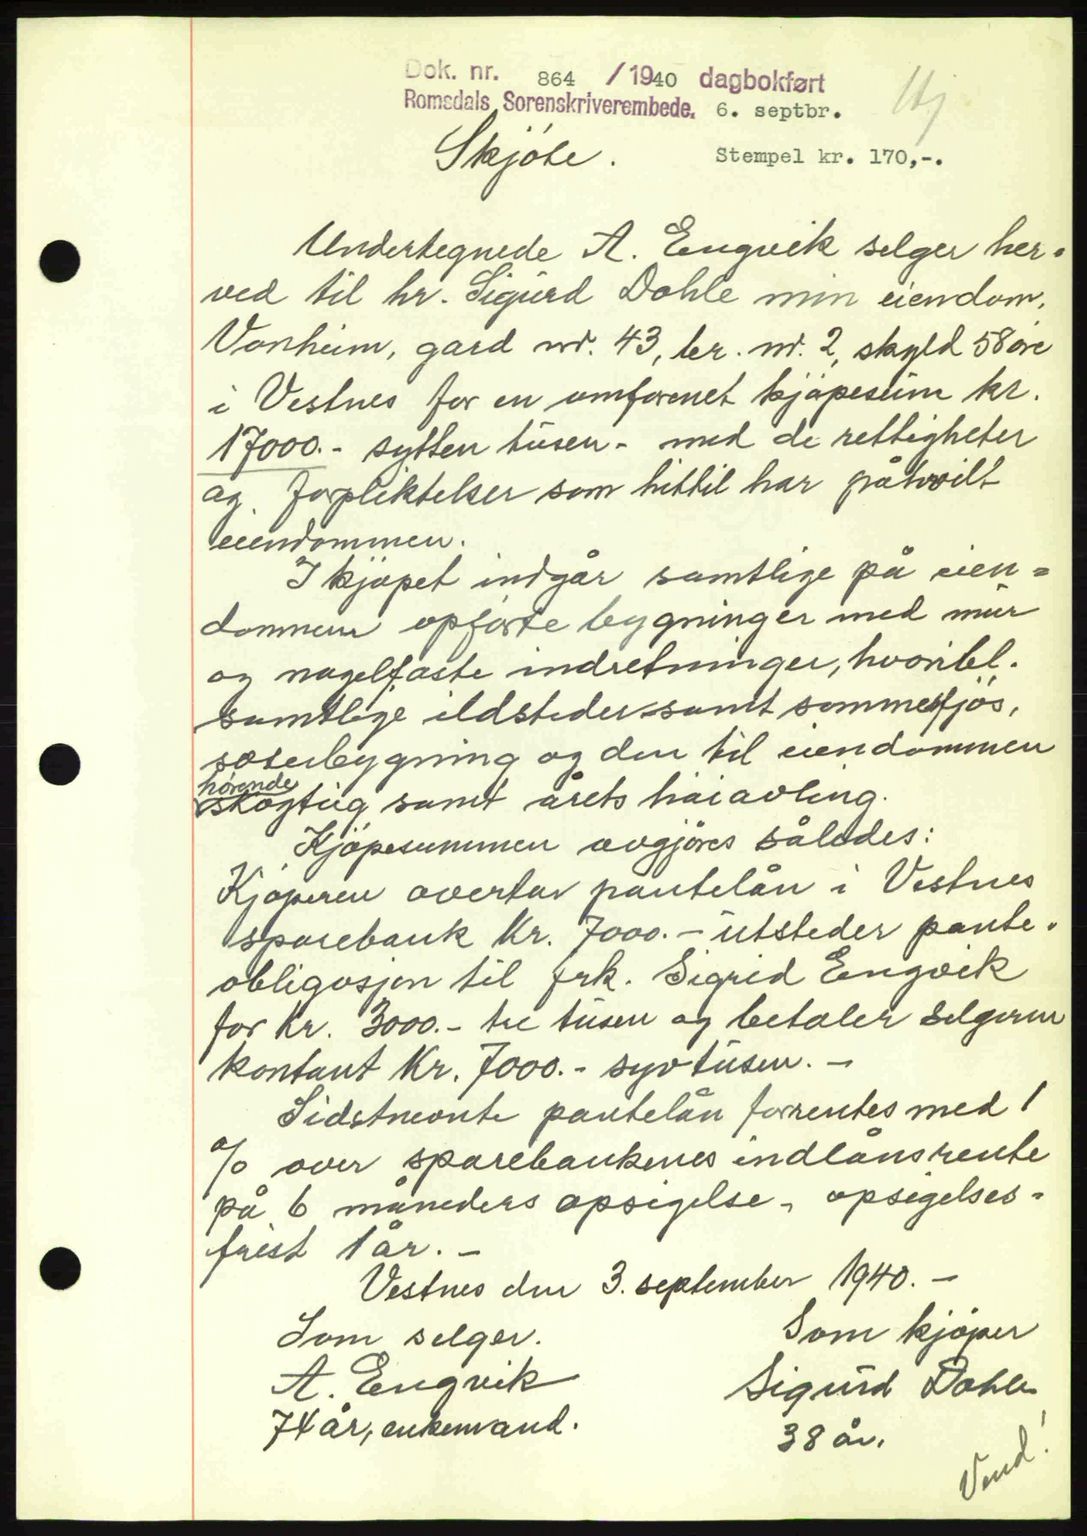 Dok. nr. 864 / 1940 dagbokført
Romsdals Sorenskriverembede. 6. septbr.
Skjøte. Stempel kr. 170,-.
Undertegnede A. Engvik selger her-
ved til hr. Sigurd Dahle min eiendom,
Vonheim, gard nr. 43, br. nr. 2, skyld 58 øre
i Vestnes for en omforenet kjøpesum kr.
17000.- sytten tusen - med de rettigheter
og forpliktelser som hittil har påhvilt
eiendommen.
I kjøpet indgår samtlige på eien=
dommen opførte bygninger med mur
og nagelfaste indretninger, hvoribl.
samtlige ildsteder samt sommerfjøs,
sæterbygning og den til eiendommen
hørende
skogteig samt årets høiavling.
Kjøpesummen avgjøres således:
Kjøperen overtar pantelån i Vestnes
sparebank Kr. 7000.- utsteder pante-
obligasjon til frk. Sigrid Engvik
for kr. 3000.- tre tusen og betaler selgeren
kontant Kr. 7000.- syv tusen. -
Sidstnevnte pantelån forrentes med 1
% over sparebankenes indlånsrente
på 6 måneders opsigelse, opsigelses-
frist 1 år. -
Vestnes den 3. september 1940. -
Som selger. Som kjøper
A. Engvik Sigurd Dahle
74 år, enkemand. 38 år.
Vend!